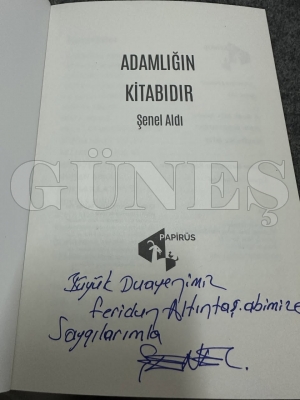 ADAMLIĞIN
KİTABIDIR
Şenel Aldı
GÜNEŞ
PAPİRÜS
Büyük Duayenimiz
Feridun Altıntaş abimize
Saygılarımla